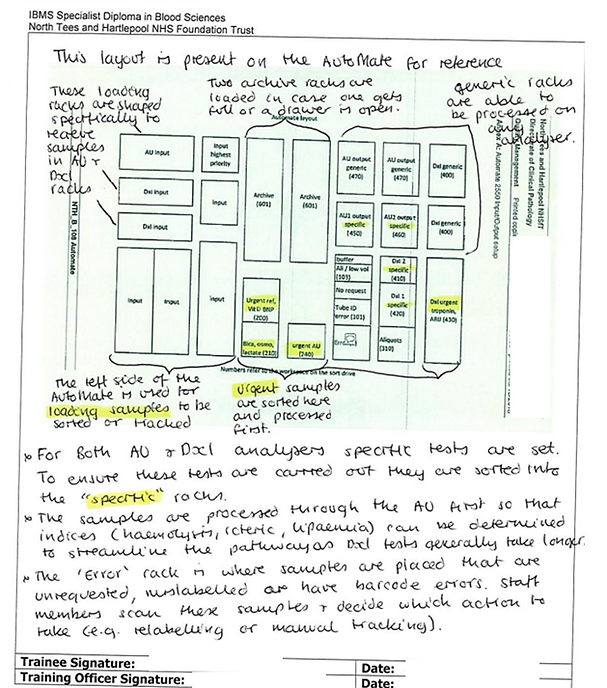 IBMS Specialist Diploma in Blood Sciences
North Tees and Hartlepool NHS Foundation Trust
This layout is present on the AutoMate for reference
These loading
racks are shaped
specifically to
receive
samples
in AU &
DxI
racks
Two archive racks are
loaded in case one gets
full or a drawer is open.
generic racks
are able to
be processed on
any
analyser.
Automate layout
AU input
DxI input
DxI input
Input
highest
priority
Input
Input
Input
input
Archive
(601)
Archive
(601)
Urgent ref,
Vit D BNP
(200)
Bica, osmo,
lactate (210)
urgent AU
(240)
AU output
generic
(470)
AU output
generic
(470)
DxI generic
(400)
AU1 output
specific
(450)
AU2 output
specific
(460)
DxI generic
(400)
buffer
Ali / low vol
(103)
No request
Tube ID
error (101)
Error
DxI 2
specific
(410)
DxI 1
specific
(420)
Aliquots
(310)
DxI urgent
troponin,
(430)
NTH_B_108 Automate
North Tees and Hartlepool NHSFT
Directorate of Clinical Pathology
Management Printed copies
A: Automate 2550 Input/Output setup
Numbers refer to the workspace on the sort drive
The left side of the
AutoMate is used for
loading samples to be
sorted or tracked
urgent samples
are sorted here
and processed
first.
* For both AU & DxI analysers specific tests are set.
To ensure these tests are carried out they are sorted into
the "specific" racks.
* The samples are processed through the AU first so that
indices (haemolysis, icteric, lipaemia) can be determined
to streamline the pathway as DxI tests generally take longer.
* The 'Error' rack is where samples are placed that are
unrequested, mislabelled or have barcode errors. Staff
members scan these samples & decide which action to
take (e.g. relabelling or manual tracking).
Trainee Signature:
Date:
Training Officer Signature:
Date: